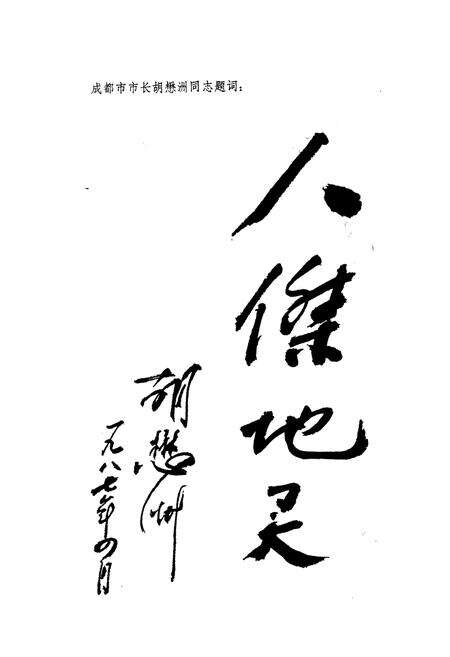 成都市市长胡懋洲同志题词：
人傑地灵
胡懋洲
一九八七年四月